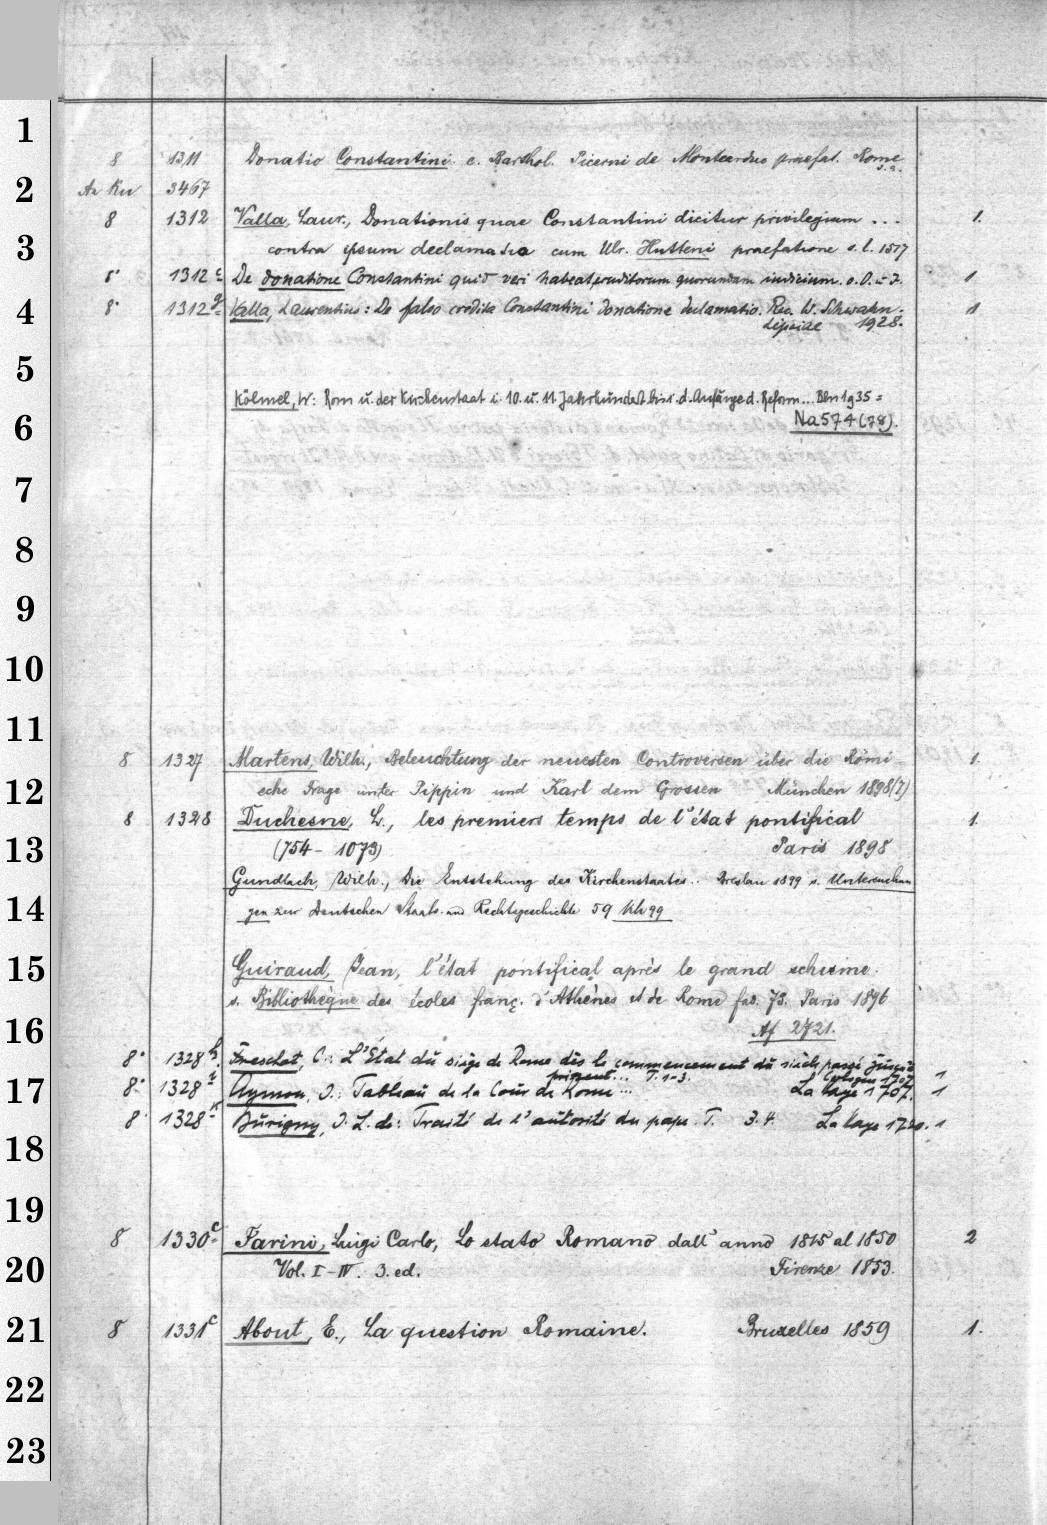 1
8 1311 Donatio Constantini c. Barthol. Picerni de praefat. Rome
s.a.
2 3467
8 1312 Valla, Laur., Donationis quae Constantini dicitur privilegium ... 1.
3 contra ipsum declamatio cum Ulr. Hutteni praefatione s. l. 1517
8° 1312 c De donatione Constantini quid veri habeat, eruditorum quorundam iudicium. o. O. u. J. 1
4 8° 1312 g Valla, Laurentius: De falso credita Constantini donatione declamatio. Rec. W. Schwahn. 1
Lipsiae 1928.
5
Kölmel, W: Rom u. der Kirchenstaat i. 10. u. 11 Jahrhundert bis i. d. Anfänge d. Reform... Bln 1935 =
6 Na 574 (78).
7
8
9
10
11
8 1327 Martens, Wilh., Beleuchtung der neuesten Controversen über die Römi 1.
12 sche Frage unter Pippin und Karl dem Grossen München 1898(7)
8 1328 Duchesne, L., les premiers temps de l'état pontifical 1.
13 (754 - 1073) Paris 1898
Gundlach, Wilh., Die Entstehung des Kirchenstaates.. Breslau 1899 s. Untersuchun
14 gen zur Deutschen Staats- und Rechtsgeschichte 59
15 Guiraud, Jean, l'état pontifical après le grand schisme.
s. Bibliothèque des écoles franç. d'Athènes et de Rome fas. 73. Paris 1896
16 Af 2721.
8° 1328 h Freschot, C.: L'État du siège de Rome dès le commencement du siècle passé jusqu'à 1
présent... T. 1-3. Cologne 1707
17 8° 1328 i Aymon, J.: Tableau de la Cour de Rome ... La Haye 1707. 1
8° 1328 k Burigny, J. L. de: Traité de l'autorité du pape. T. 3. 4. La Haye 1720. 1
18
19
8 1330 c Farini, Luigi Carlo, Lo stato Romano dall' anno 1815 al 1850 2
20 Vol. I - IV. 3. ed. Firenze 1853.
21 8 1331 c About, E., La question Romaine. Bruxelles 1859 1.
22
23